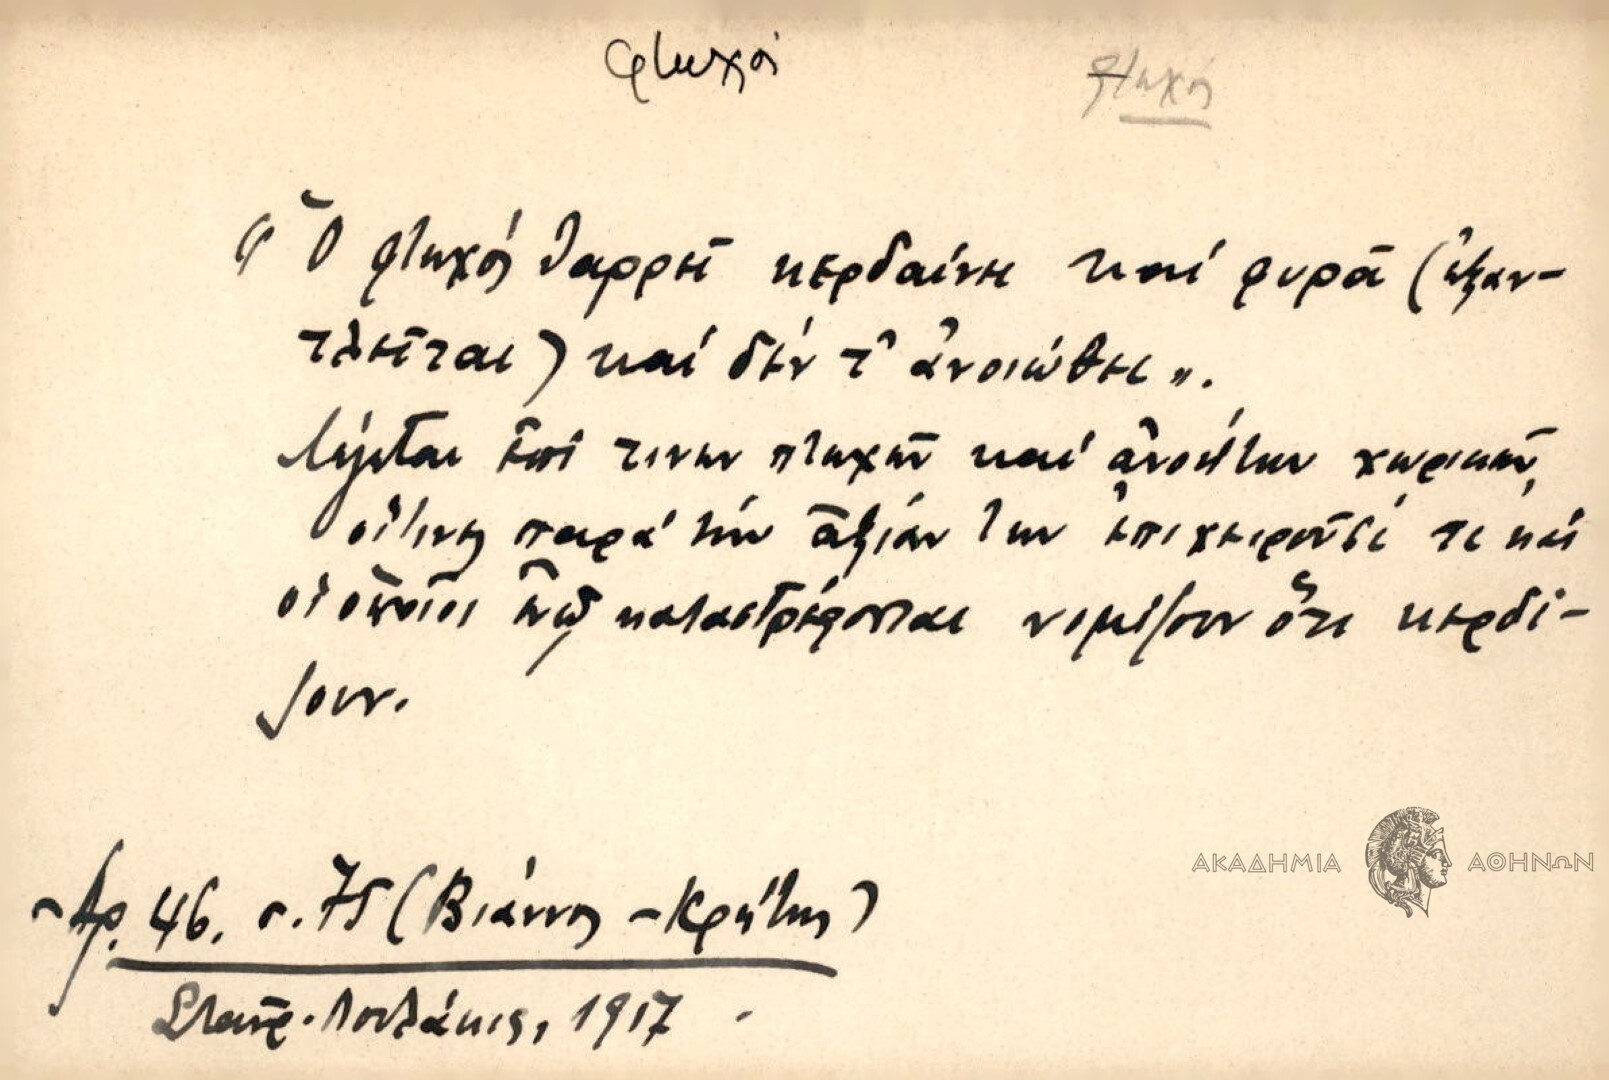 φτωχός
φτωχός
“Ὁ φτωχός θαρρεῖ κερδαίνει καί φυρᾶ (ἐξαν-
τλεῖται) καί δέν τ' ἀνοιώθει”.
Λέγεται ἐπί τινων πτωχῶν καί ἀνοήτων χωρικῶν,
οἵτινες παρά τήν ἀξίαν των ἐπιχειροῦσί τι καί
οἱ ὁποῖοι ἐνῷ καταστρέφονται νομίζουν ὅτι κερδί-
ζουν.
Ἀρ. 46. σ. 75 (Βιάννος - Κρήτης)
Σταῦρ. 1917
ΑΚΑΔΗΜΙΑ ΑΘΗΝΩΝ